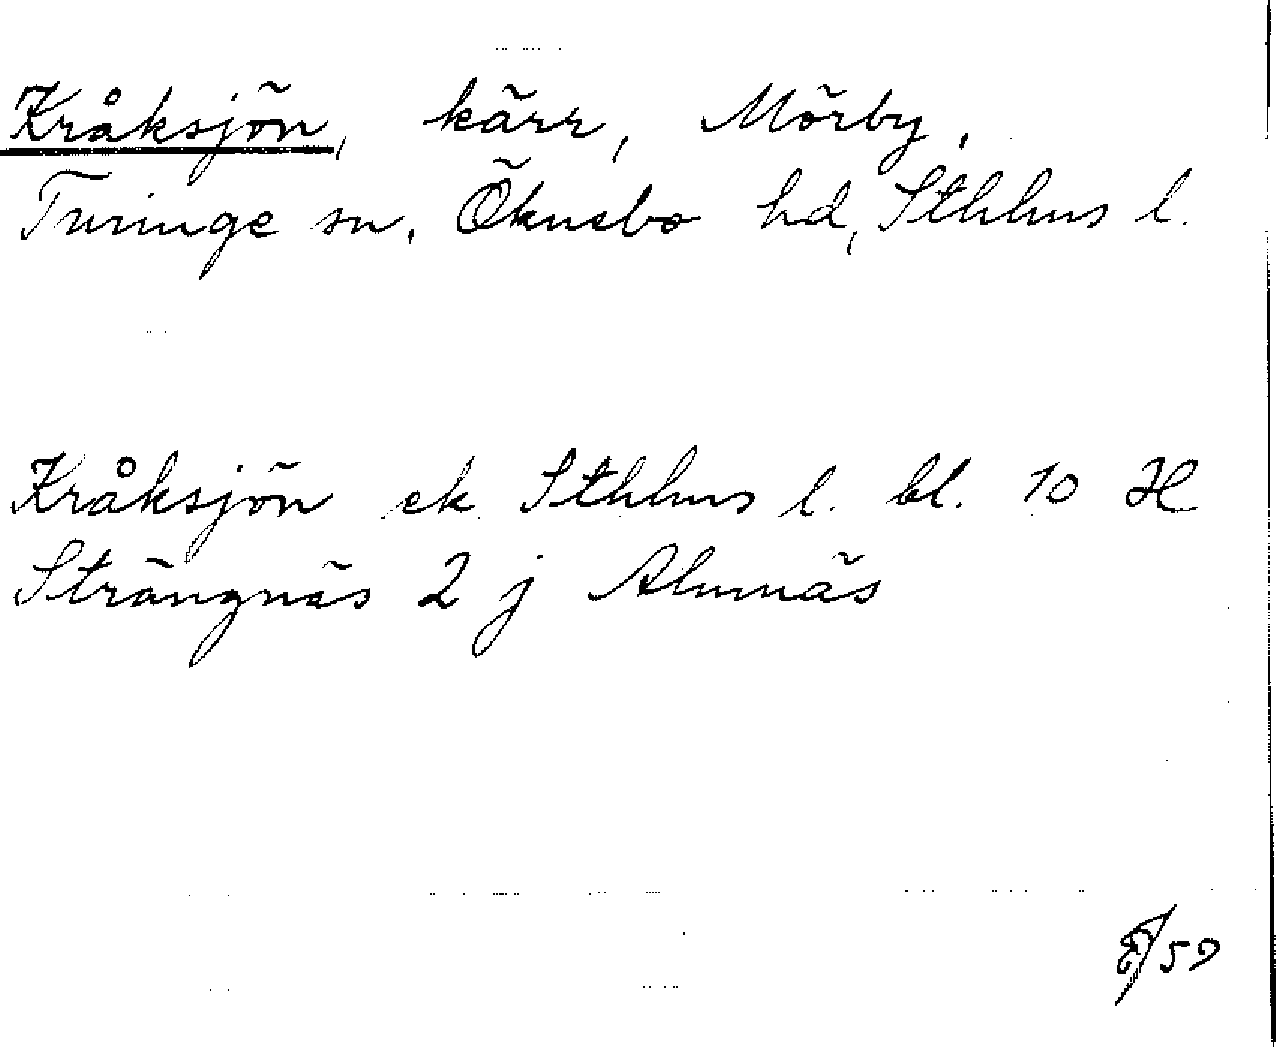 Kråksjön, kärr, Mörby,
Turinge sn, Öknebo hd, Sthlms l.
Kråksjön ek Sthlms l. bl. 10 H
Strängnäs 2 j Almnäs
59